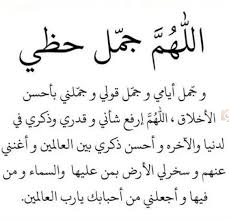 اللّٰهُمَّ جمّل حظي
و جَمل أيامي و جمّل قولي و جمّلني بأحسن
الأخلاق ، اللّٰهُمَّ إرفع شأني و قدري وذكري في
لدنيا والآخره و أحسن ذكري بين العالمين و أغنني
عنهم و سخرلي الأرض بمن عليها والسماء و من
فيها و أجعلني من أحبابك يارب العالمين.